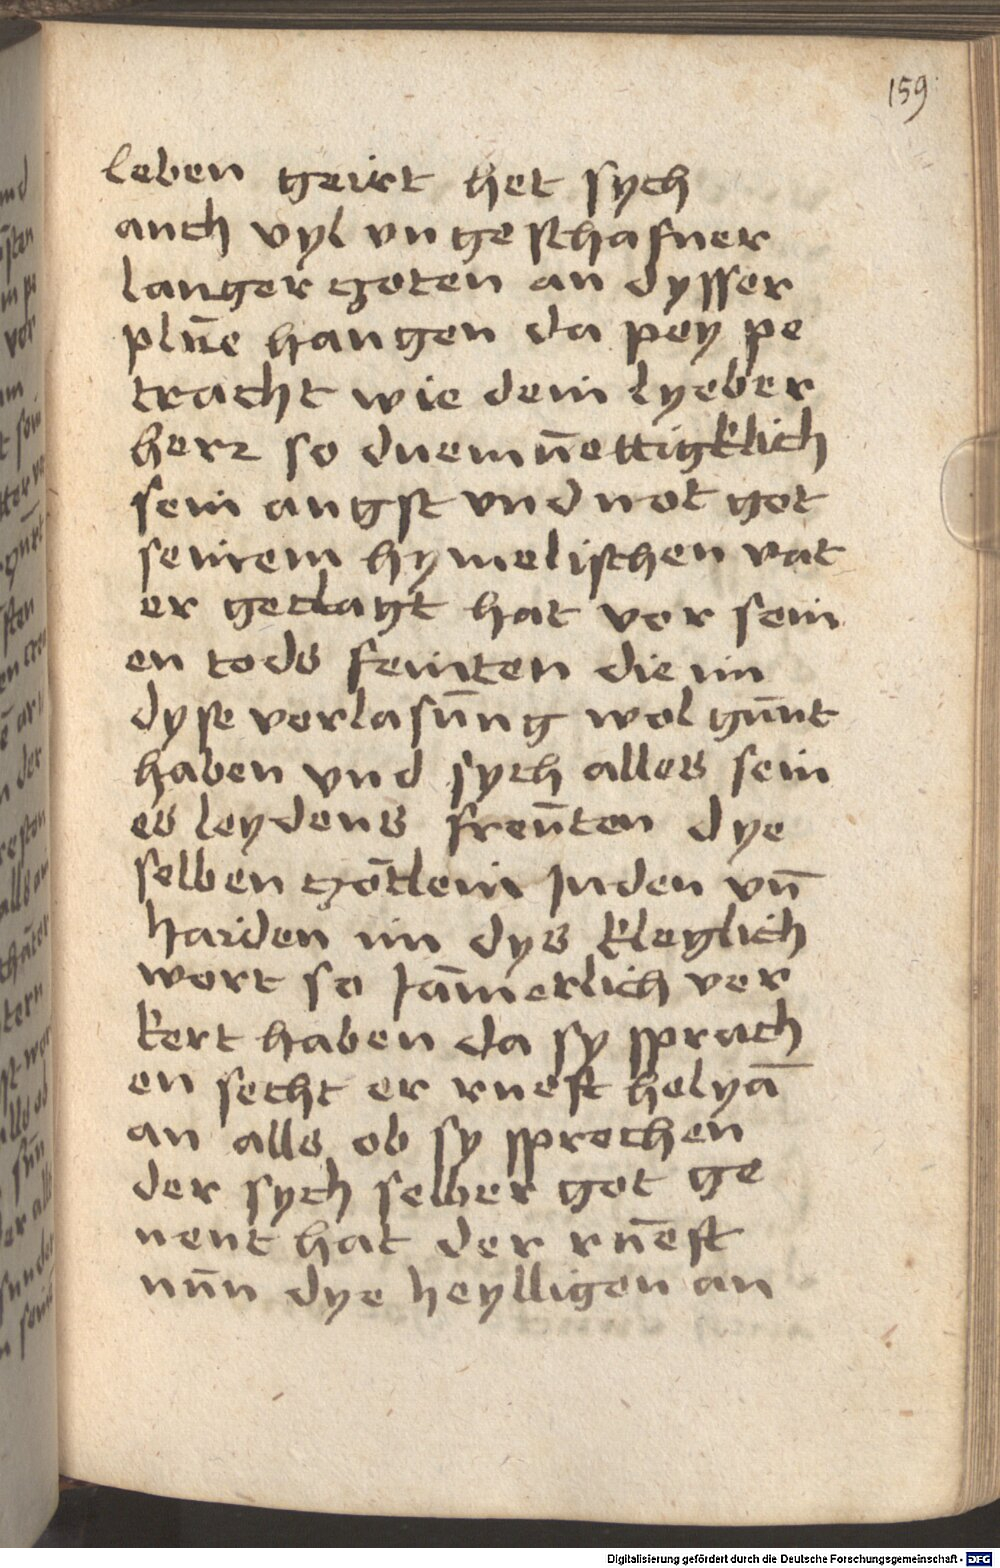 159
leben geirt het sych
auch vyl vngeschafner
langer zoten an dysser
plüe hangen da pey pe
tracht wie dein lyeber
herr so duemüettigklich
sein angst vnd not got
seinem hymelischen vat
er geclagt hat vor sein
en tods feinten die im
dyse verlasüng wol günt
haben vnd sych alles sein
es leydens freüten dye
selben götlein Juden vn̄
haiden im dys kleglich
wort so Jämerlich ver
kert haben da sy sprach
en secht er rueft helyā
an alls ob sy sprechen
der sych selber got ge
nent hat der rüeft
nün dye heylligen an
Digitalisierung gefördert durch die Deutsche Forschungsgemeinschaft - DFG